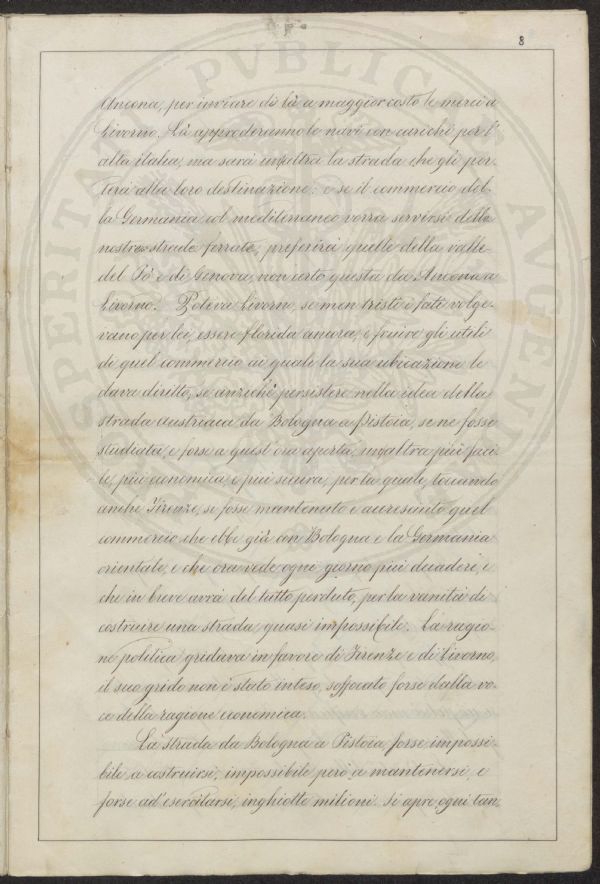 8
Ancona, per inviare di là a maggior costo le merci a
Livorno. Là approderanno le navi con carichi per l'
alta italia, ma sarà un'altra la strada che gli por-
terà alla loro destinazione: e se il commercio del-
la Germania col mediterraneo vorrà servirsi della
nostra strade ferrate, preferirà quelle della valle
del Pò e di Genova, non certo questa da Ancona a
Livorno. Poteva Livorno, se men tristi i fati volge-
vano per lei, essere florida ancora, e fruire gli utili
di quel commercio ai quali la sua ubicazione le
dava diritto, se anzichè persistere nella idea della
strada austriaca da Bologna a Pistoia, se ne fosse
studiata, e forse a quest'ora aperta, un'altra più faci-
le, più economica, e più sicura, per la quale, toccando
anche Firenze, si fosse mantenuto e accresciuto quel
commercio che ebbe già con Bologna e la Germania
orientale, e che ora vede ogni giorno più decadere, e
che in breve avrà del tutto perduto, per la vanità di
costruire una strada, quasi impossibile. La ragio-
ne politica gridava in favore di Firenze e di Livorno,
il suo grido non è stato inteso, soffocato forse dalla vo-
ce della ragione economica.
La strada da Bologna a Pistoia forse impossi-
bile a costruirsi, impossibile però a mantenersi, e
forse ad'esercitarsi, inghiotte milioni. Si apre ogni tan-